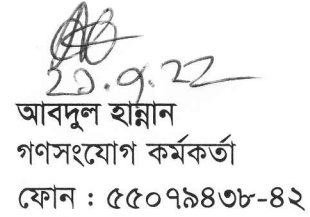 ২১.৭.২২
আবদুল হান্নান
গণসংযোগ কর্মকর্তা
ফোন : ৫৫০৭৯৪৩৮-৪২